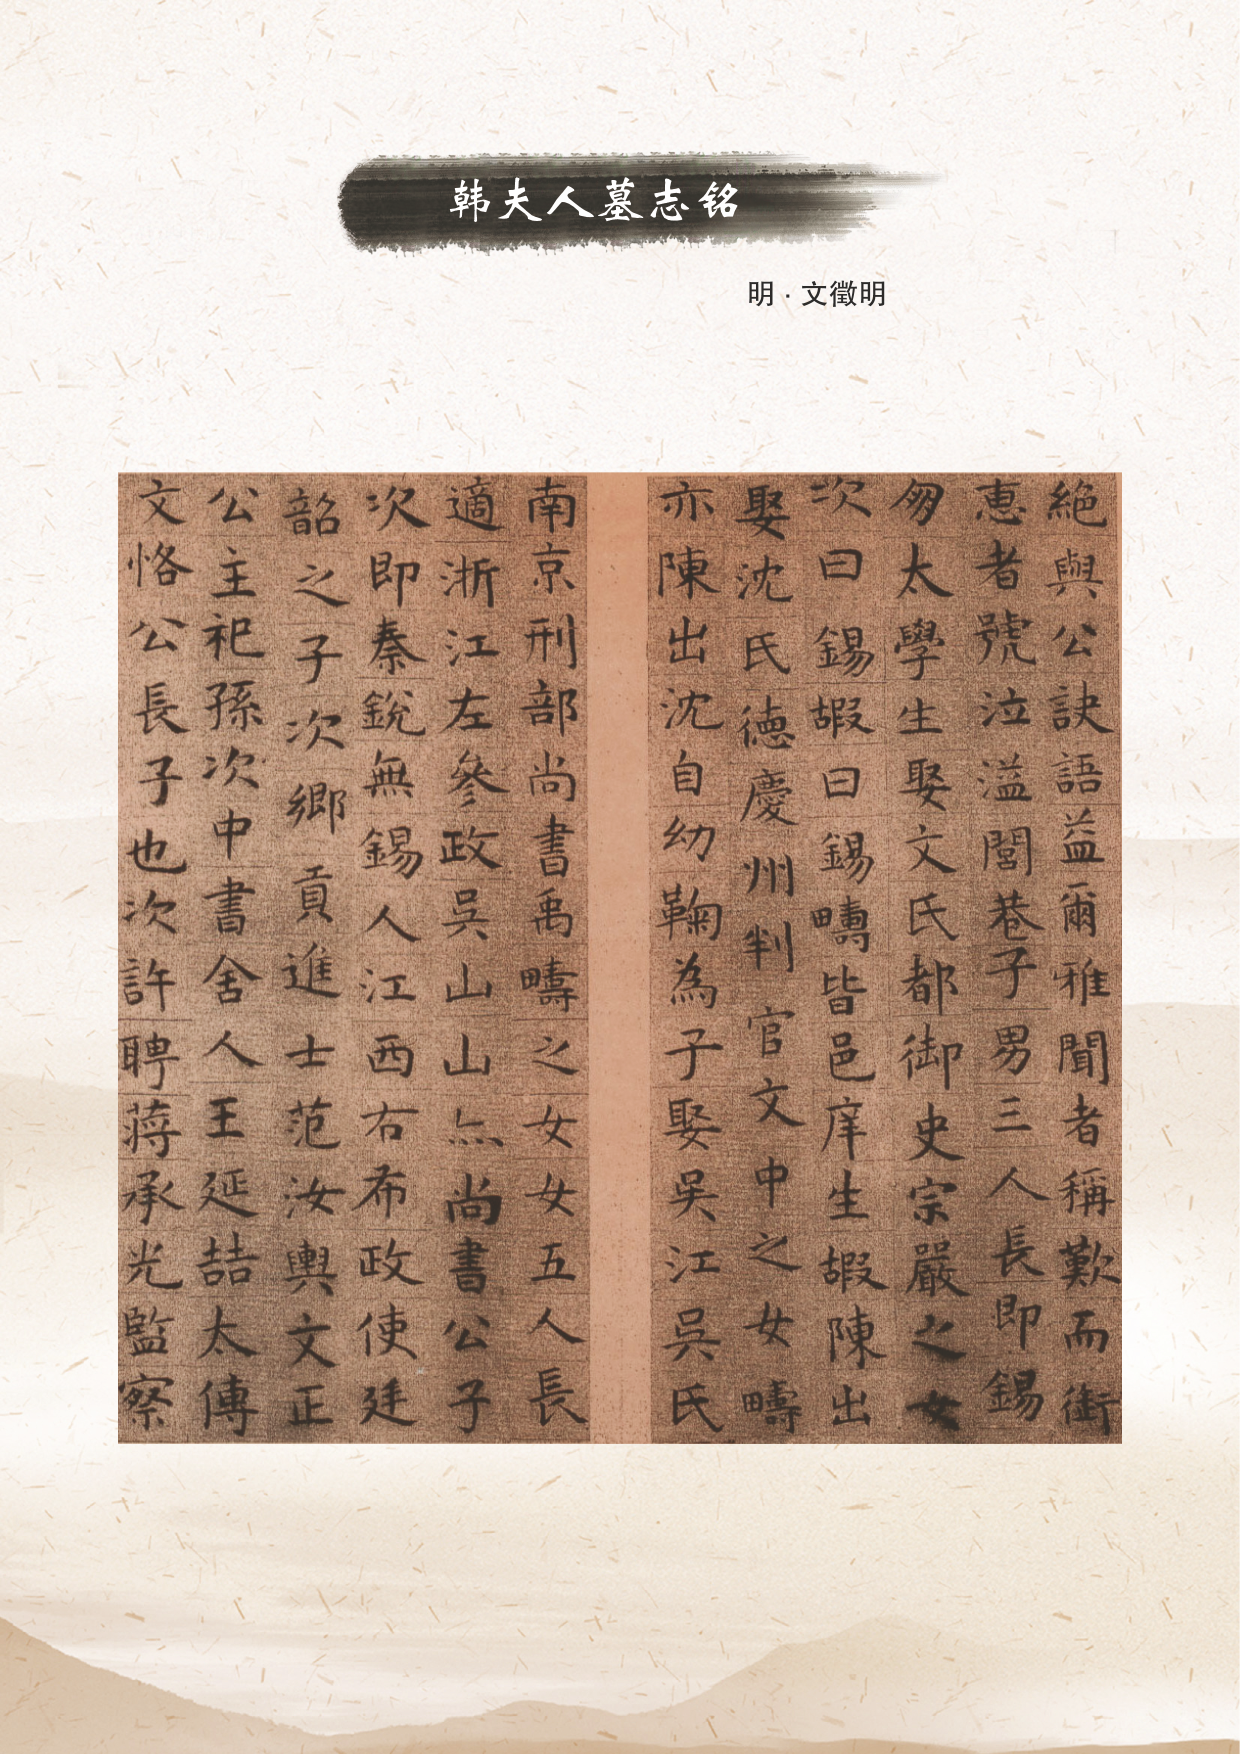 韩夫人墓志铭
明·文徵明
絕與公訣語益爾雅聞者稱歎而銜
惠者號泣溢閭巷子男三人長即錫
匆太學生娶文氏都御史宗嚴之女
次曰錫嘏曰錫疇皆邑庠生嘏陳出
娶沈氏德慶州判官文中之女疇
亦陳出沈自幼鞠為子娶吳江吳氏
南京刑部尚書禹疇之女女五人長
適浙江左參政吳山山尚書公子
次即秦銳無錫人江西右布政使廷
韶之子次鄉貢進士范汝輿文正
公主祀孫次中書舍人王延喆太傅
文恪公長子也次許聘蔣承光監察